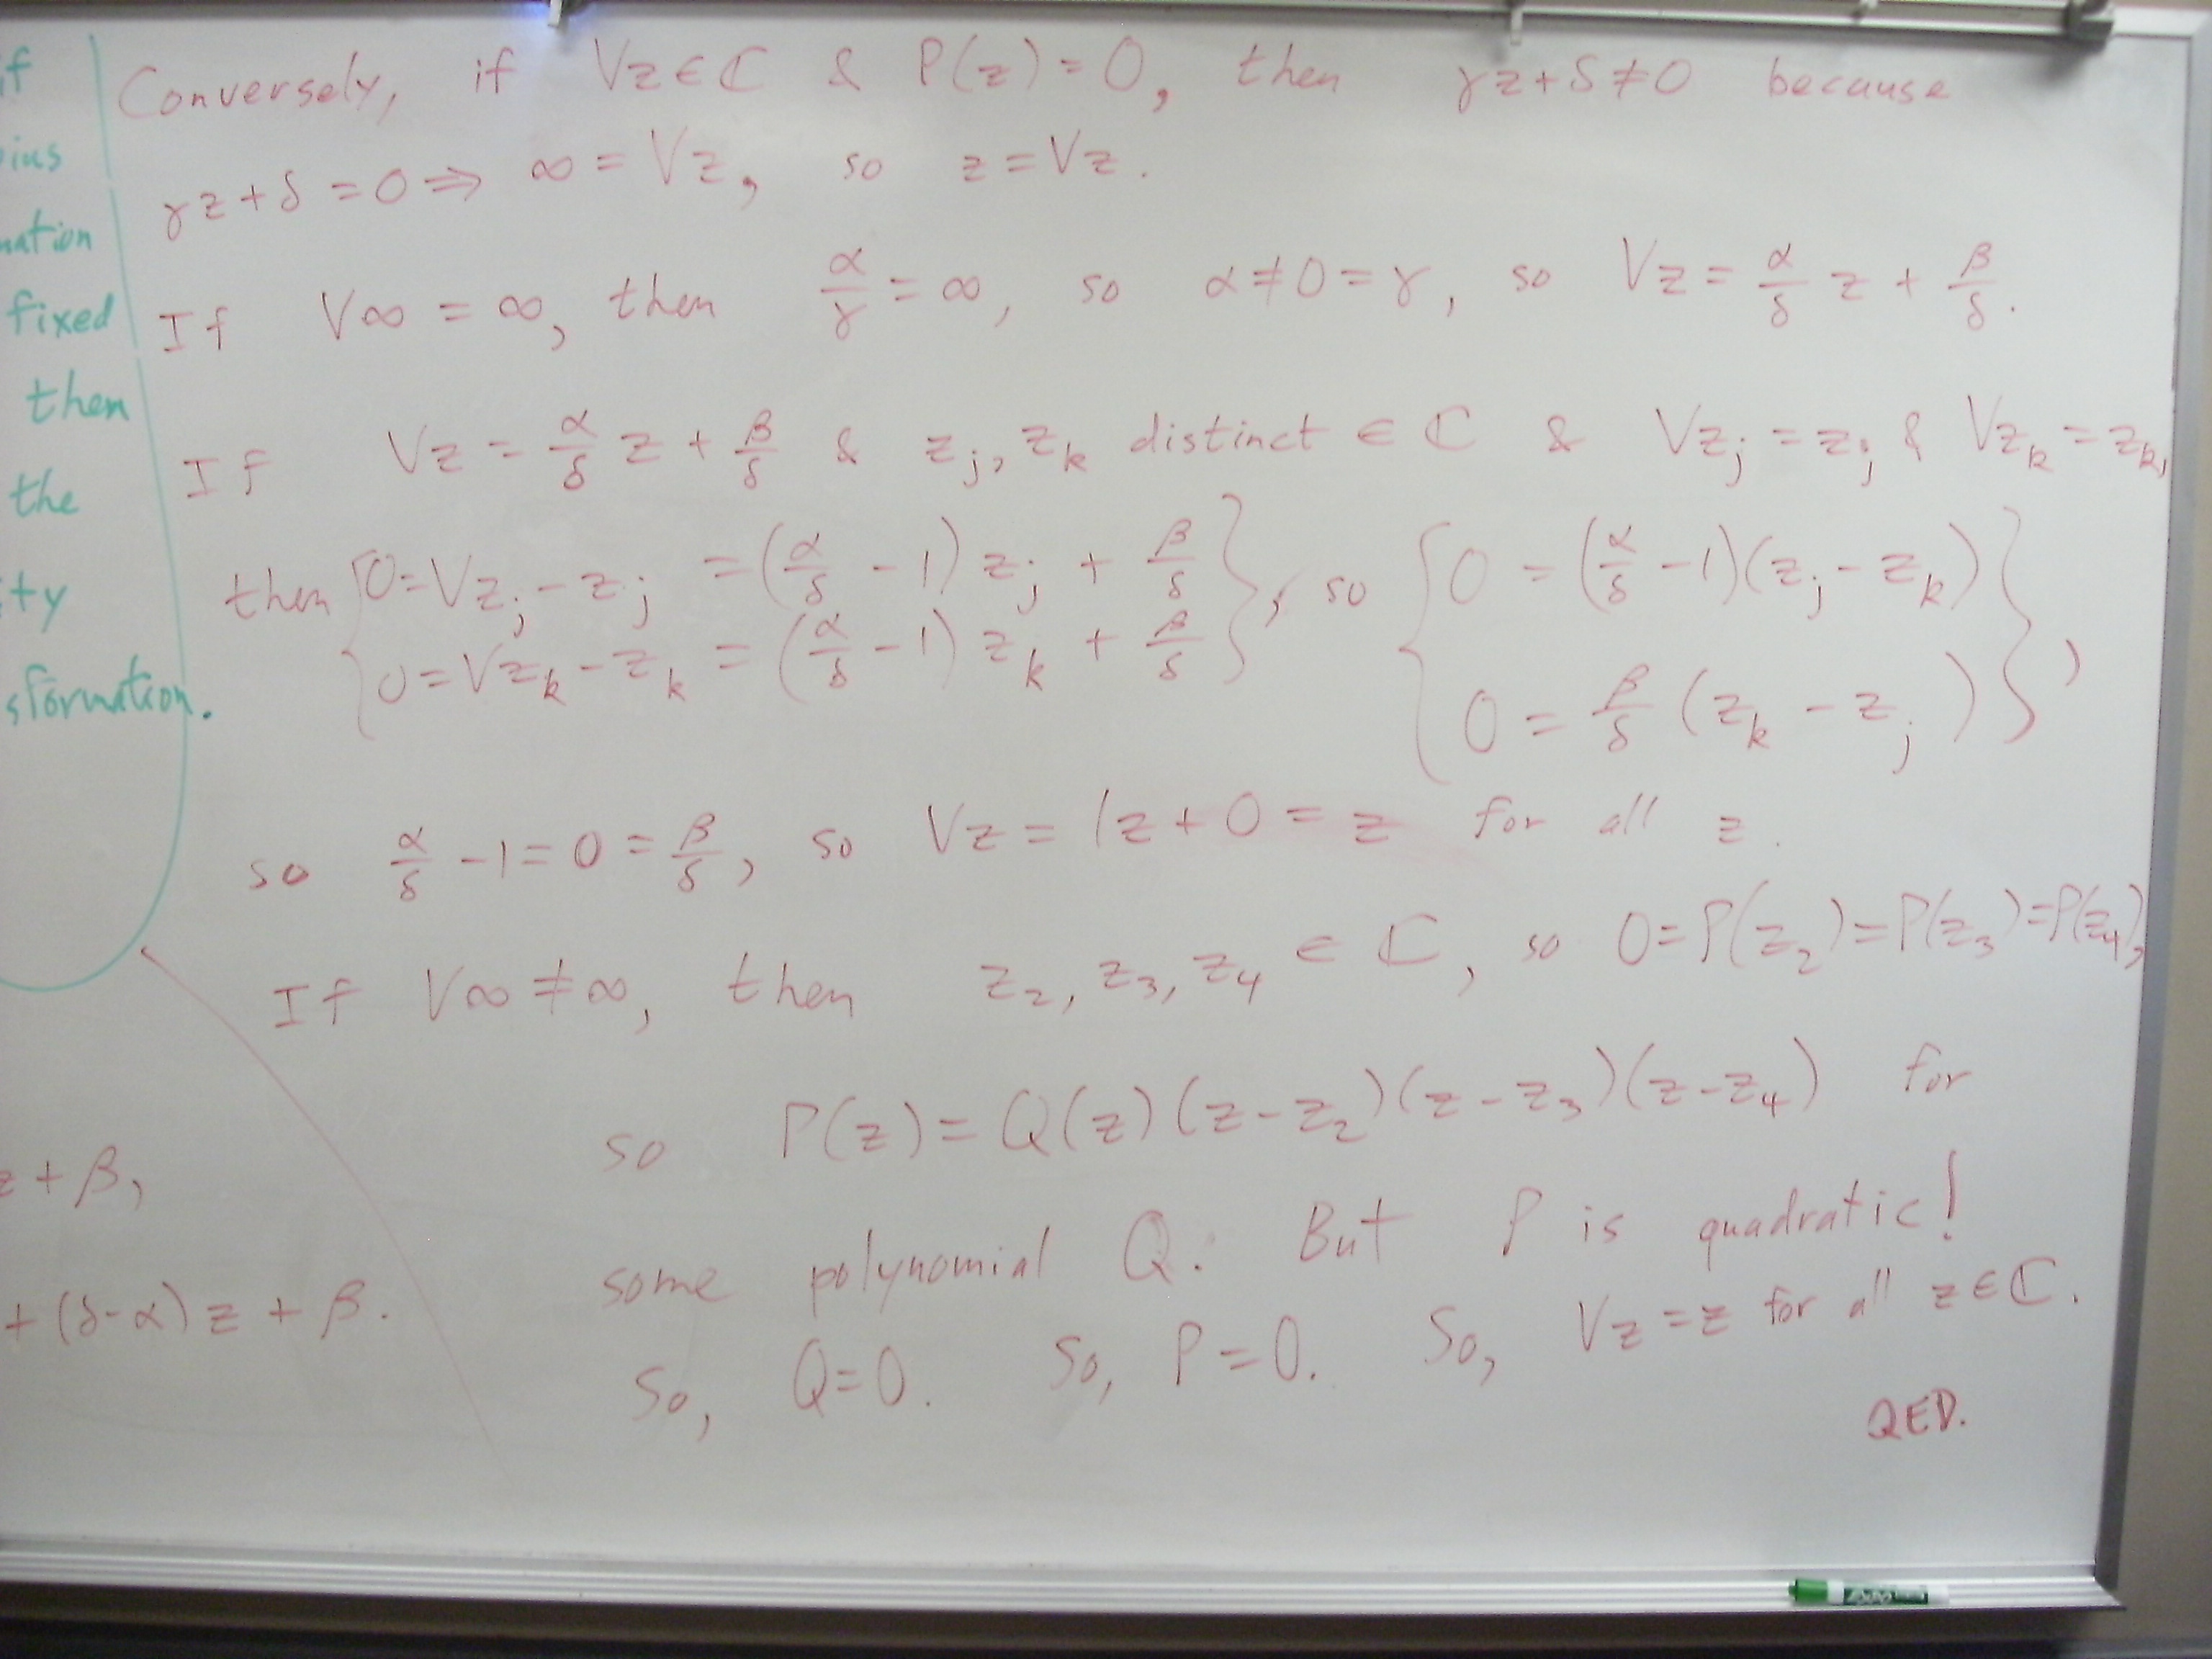 if
ius
mation
fixed
then
the
ty
sformation.
Conversely, if Vz ∈ ℂ & P(z) = 0, then γz + δ ≠ 0 because
γz + δ = 0 ⇒ ∞ = Vz, so z = Vz.
If V∞ = ∞, then α/γ = ∞, so α ≠ 0 = γ, so Vz = α/δ z + β/δ.
If Vz = α/δ z + β/δ & z_j, z_k distinct ∈ ℂ & Vz_j = z_j & Vz_k = z_k,
then { 0 = Vz_j - z_j = (α/δ - 1) z_j + β/δ
0 = Vz_k - z_k = (α/δ - 1) z_k + β/δ }, so { 0 = (α/δ - 1)(z_j - z_k)
0 = β/δ (z_k - z_j) },
so α/δ - 1 = 0 = β/δ, so Vz = 1z + 0 = z for all z.
If V∞ ≠ ∞, then z_2, z_3, z_4 ∈ ℂ, so 0 = P(z_2) = P(z_3) = P(z_4),
so P(z) = Q(z)(z - z_2)(z - z_3)(z - z_4) for
some polynomial Q. But P is quadratic!
So, Q = 0. So, P = 0. So, Vz = z for all z ∈ ℂ.
QED.
z + β,
+ (δ - α) z + β.